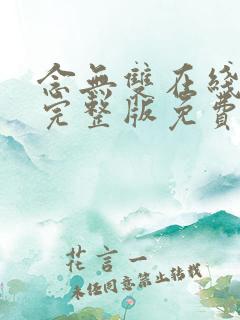 念無雙在綫
完整版免費
花言一
未经同意禁止转载